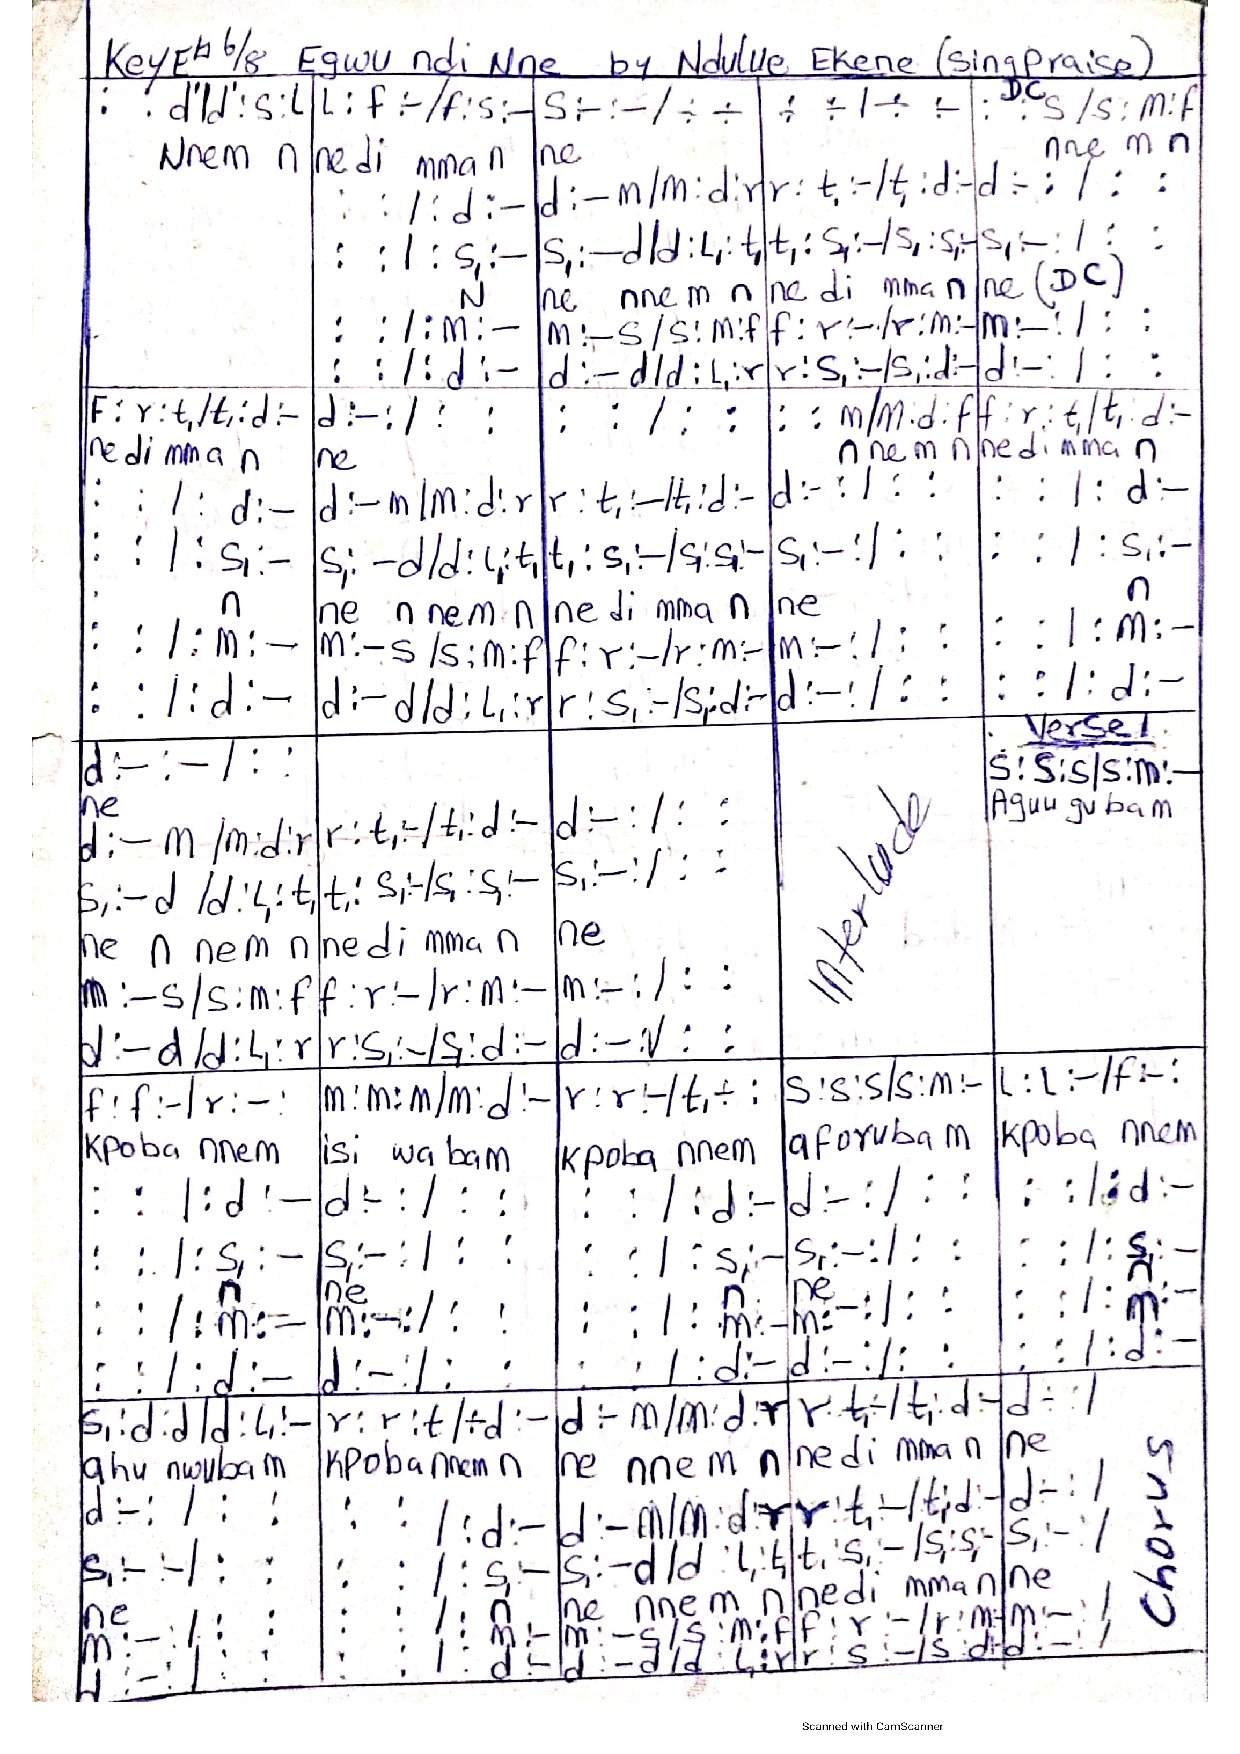 Key Eb 6/8 Egwu ndi Nne by Ndulue Ekene (Singpraise)
: : d'/d':s:L L:f:-/f:s:- S:-:-/÷ ÷ ÷ ÷/÷ ÷ : DC:S/s:m:f
Nnem n nedi mma n ne nne m n
: :/:d:- d:-m/m:d:r r:t₁:-/t₁:d:- d:-:/: :
: :/:s₁:- s₁:-d/d:L₁:t₁ t₁:s₁:-/s₁:s₁:- s₁:-:/: :
N ne nnem n ne di mma n ne (DC)
: :/:m:- m:-s/s:m:f f:r:-/r:m:- m:-:/: :
: :/:d:- d:-d/d:L₁:r r:s₁:-/s₁:d:- d:-:/: :
F:r:t₁/t₁:d:- d:-:/: : : :/: : : :m/m:d:f f:r:t₁/t₁:d:-
ne di mma n ne n nem n ne di mma n
: :/:d:- d:-m/m:d:r r:t₁:-/t₁:d:- d:-:/: : : :/:d:-
: :/:s₁:- s₁:-d/d:L₁:t₁ t₁:s₁:-/s₁:s₁:- s₁:-:/: : : :/:s₁:-
n ne n nem n ne di mma n ne n
: :/:m:- m:-s/s:m:f f:r:-/r:m:- m:-:/: : : :/:m:-
: :/:d:- d:-d/d:L₁:r r:s₁:-/s₁:d:- d:-:/: : : :/:d:-
Verse 1
d:-:-/: : S:S:S/S:m:-
ne Aguu gu bam
d:-m/m:d:r r:t₁:-/t₁:d:- d:-:/: :
s₁:-d/d:L₁:t₁ t₁:s₁:-/s₁:s₁:- s₁:-:/: :
ne n nem n ne di mma n ne
m:-s/s:m:f f:r:-/r:m:- m:-:/: :
d:-d/d:L₁:r r:s₁:-/s₁:d:- d:-:/: :
Interlude
f:f:-/r:-: m:m:m/m:d:- r:r:-/t₁÷: S:S:S/S:m:- L:L:-/f:-:
kpoba nnem isi wa bam kpoba nnem aforuba m kpoba nnem
: :/:d:- d:-:/: : : :/:d:- d:-:/: : : :/:d:-
: :/:s₁:- s₁:-:/: : : :/:s₁:- s₁:-:/: : : :/:s₁:-
n ne n ne n
: :/:m:- m:-:/: : : :/:m:- m:-:/: : : :/:m:-
: :/:d:- d:-:/: : : :/:d:- d:-:/: : : :/:d:-
s₁:d:d/d:L₁:- r:r:t/÷d:- d:-m/m:d:r r:t₁:-/t₁:d:- d:-:/
ahu nwubam kpoba nnem n ne nne m n ne di mma n ne
d:-:/: : : :/:d:- d:-m/m:d:r r:t₁:-/t₁:d:- d:-:/
s₁:-:-/: : : :/:s₁:- s₁:-d/d:L₁:t₁ t₁:s₁:-/s₁:s₁:- s₁:-:/
ne n ne nne m n ne di mma n ne
m:-:/: : : :/:m:- m:-s/s:m:f f:r:-/r:m:- m:-:/
d:-:/: : : :/:d:- d:-d/d:L₁:r r:s:-/s:d:- d:-:/
Chorus
Scanned with CamScanner